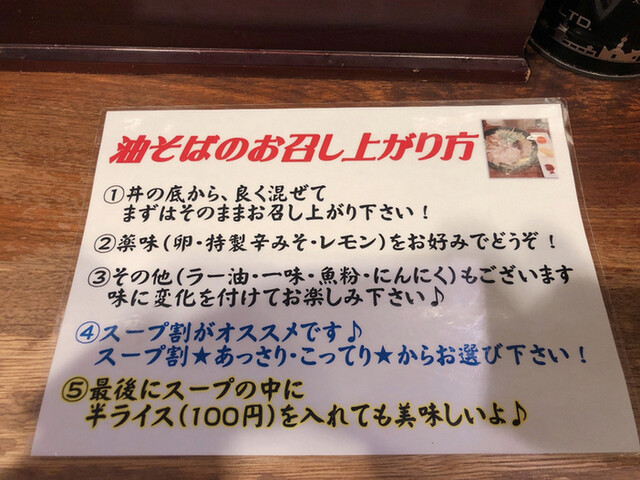 LTD.
油そばのお召し上がり方
①丼の底から、良く混ぜて
まずはそのままお召し上がり下さい！
②薬味(卵・特製辛みそ・レモン)をお好みでどうぞ！
③その他(ラー油・一味・魚粉・にんにく)もございます
味に変化を付けてお楽しみ下さい♪
④スープ割がオススメです♪
スープ割★あっさり・こってり★からお選び下さい！
⑤最後にスープの中に
半ライス(100円)を入れても美味しいよ♪